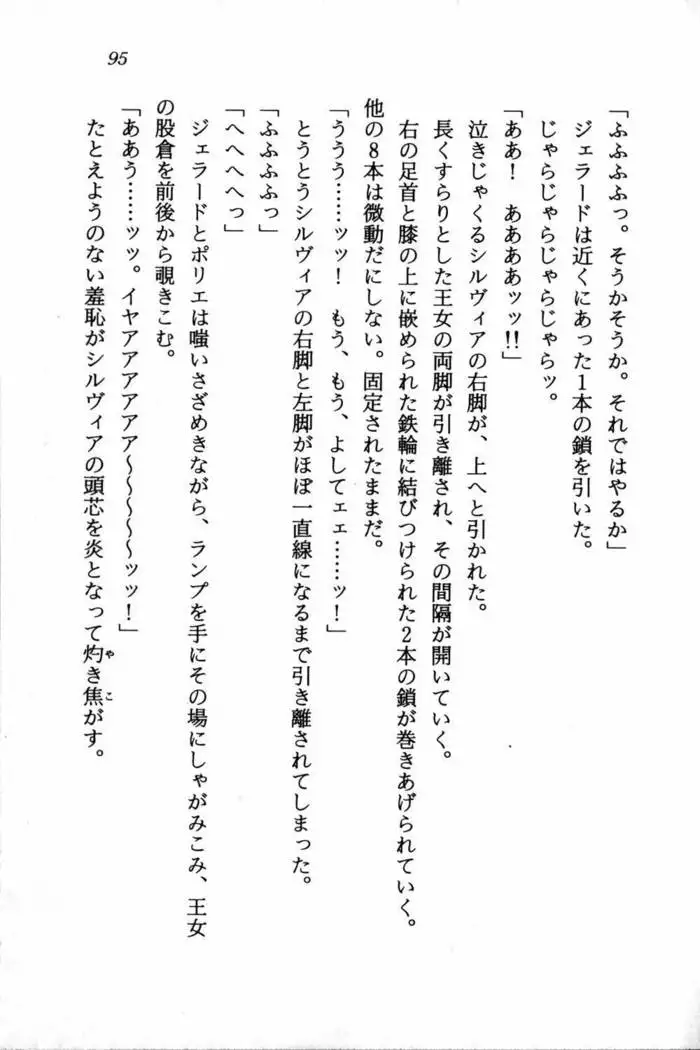 95
「ふふふふっ。そうかそうか。それではやるか」
ジェラードは近くにあった1本の鎖を引いた。
じゃらじゃらじゃらじゃらッ。
「ああ！　ああああッッ!!」
泣きじゃくるシルヴィアの右脚が、上へと引かれた。
長くすらりとした王女の両脚が引き離され、その間隔が開いていく。
右の足首と膝の上に嵌められた鉄輪に結びつけられた2本の鎖が巻きあげられていく。
他の8本は微動だにしない。固定されたままだ。
「ううう……ッッ！　もう、もう、よしてェェ……ッ！」
とうとうシルヴィアの右脚と左脚がほぼ一直線になるまで引き離されてしまった。
「ふふふふっ」
「へへへへっ」
ジェラードとポリエは嗤いさざめきながら、ランプを手にその場にしゃがみこみ、王女
の股倉を前後から覗きこむ。
「ああう……ッッ。イヤアアアアアア〜〜〜〜〜ッッ！」
たとえようのない羞恥がシルヴィアの頭芯を炎となって灼き焦がす。